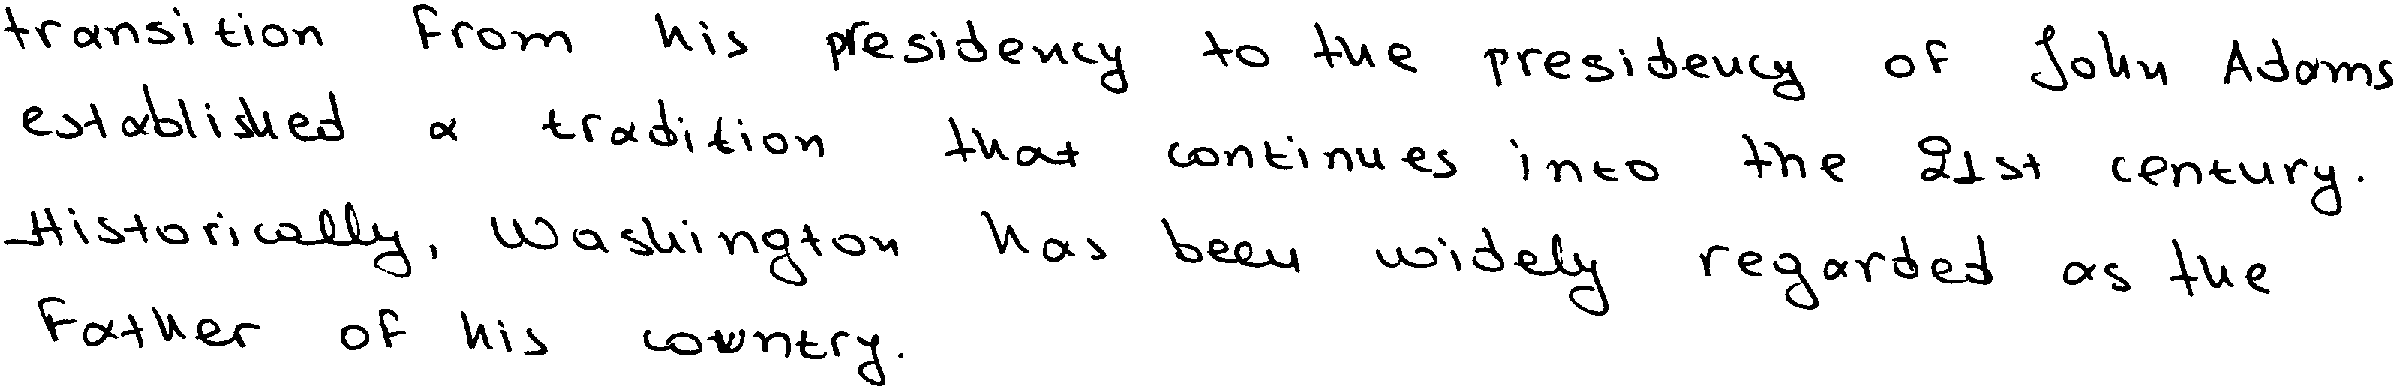 transition from his presidency to the presidency of John Adams
established a tradition that continues into the 21st century.
Historically, Washington has been widely regarded as the
Father of his country.